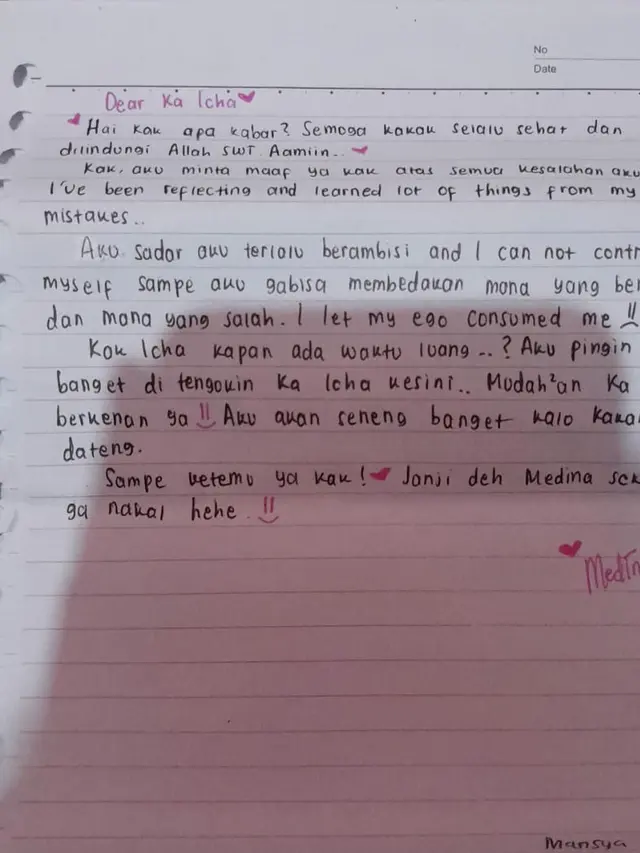 No
Date
Dear Ka Icha
Hai kak apa kabar? Semoga kakak selalu sehat dan
dilindungi Allah SWT. Aamiin..
Kak, aku minta maaf ya kak atas semua kesalahan aku
I've been reflecting and learned lot of things from my
mistakes..
Aku sadar aku terlalu berambisi and I can not contr
myself sampe aku gabisa membedakan mana yang be
dan mana yang salah. I let my ego consumed me
Kak Icha kapan ada waktu luang..? Aku pingin
banget di tengokin Ka Icha kesini.. Mudah²an Ka
berkenan ya !! Aku akan seneng banget kalo kaka
dateng.
Sampe ketemu ya kak! Janji deh Medina
ga nakal hehe. !!
Mansya